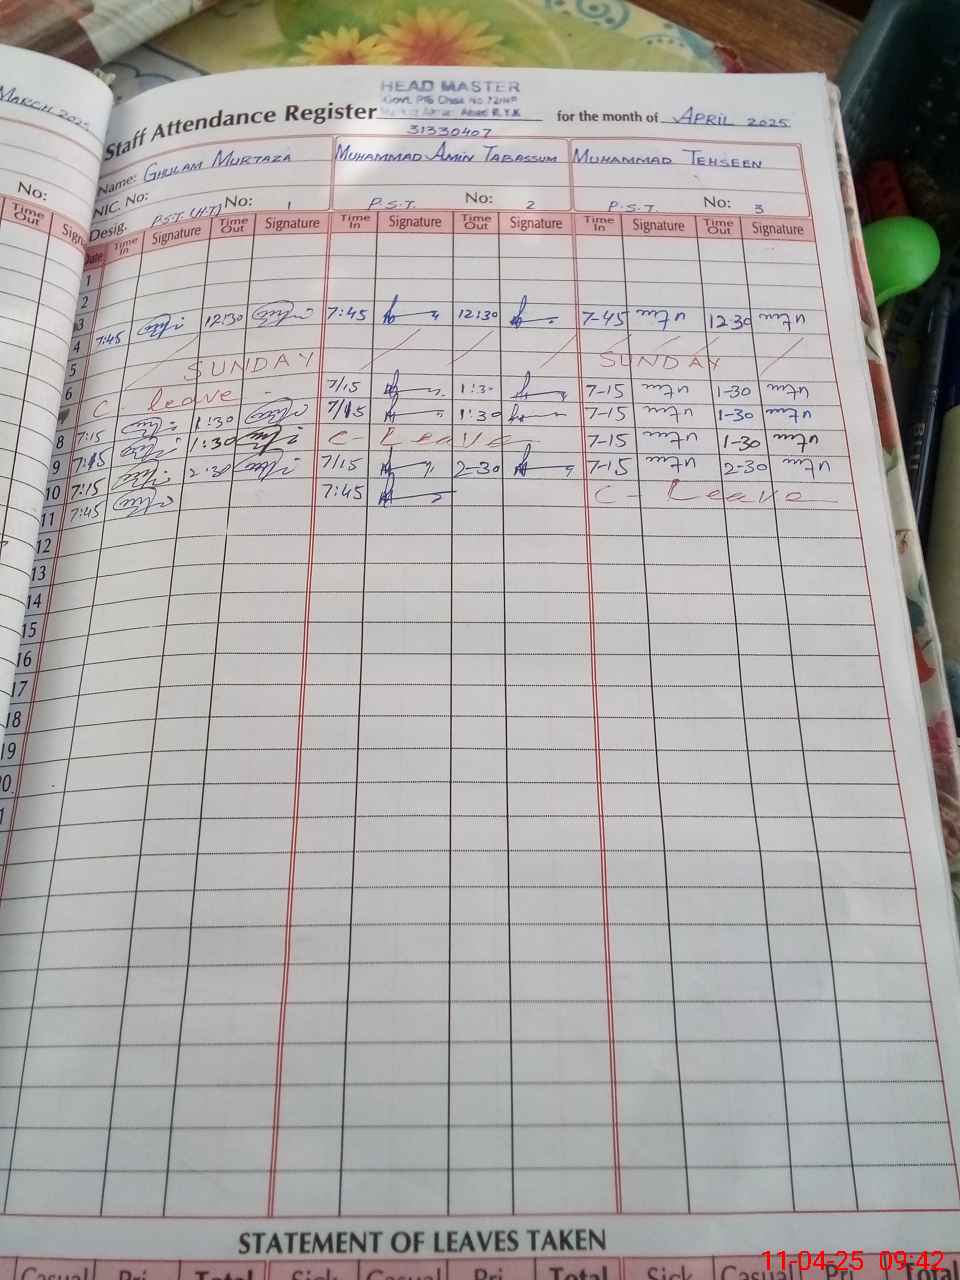 MARCH 2025
HEAD MASTER
Staff Attendance Register
31330407
for the month of APRIL 2025
No:
Name: GHULAM MURTAZA MUHAMMAD AMIN TABASSUM MUHAMMAD TEHSEEN
NIC. No:
Desig. P.S.T (H.T) No: 1 P.S.T. No: 2 P.S.T. No: 3
Time Out
Date Time In Signature Time Out Signature Time In Signature Time Out Signature Time In Signature Time Out Signature
1
2
3
4 7:45 12:30 7:45 12:30 7-45 12-30
5
6 SUNDAY SUNDAY
C. leave 7/15 1:30 7-15 1-30
8 7:15 1:30 7/15 1:30 7-15 1-30
9 7:15 1:30 C- Leave 7-15 1-30
10 7:15 2:30 7/15 2-30 7-15 2-30
11 7:45 7:45 C- Leave
12
13
14
15
16
17
18
19
20
STATEMENT OF LEAVES TAKEN
Casual Pri Total Sick Casual Pri Total Sick Casual Pri Total
11-04-25 09:42